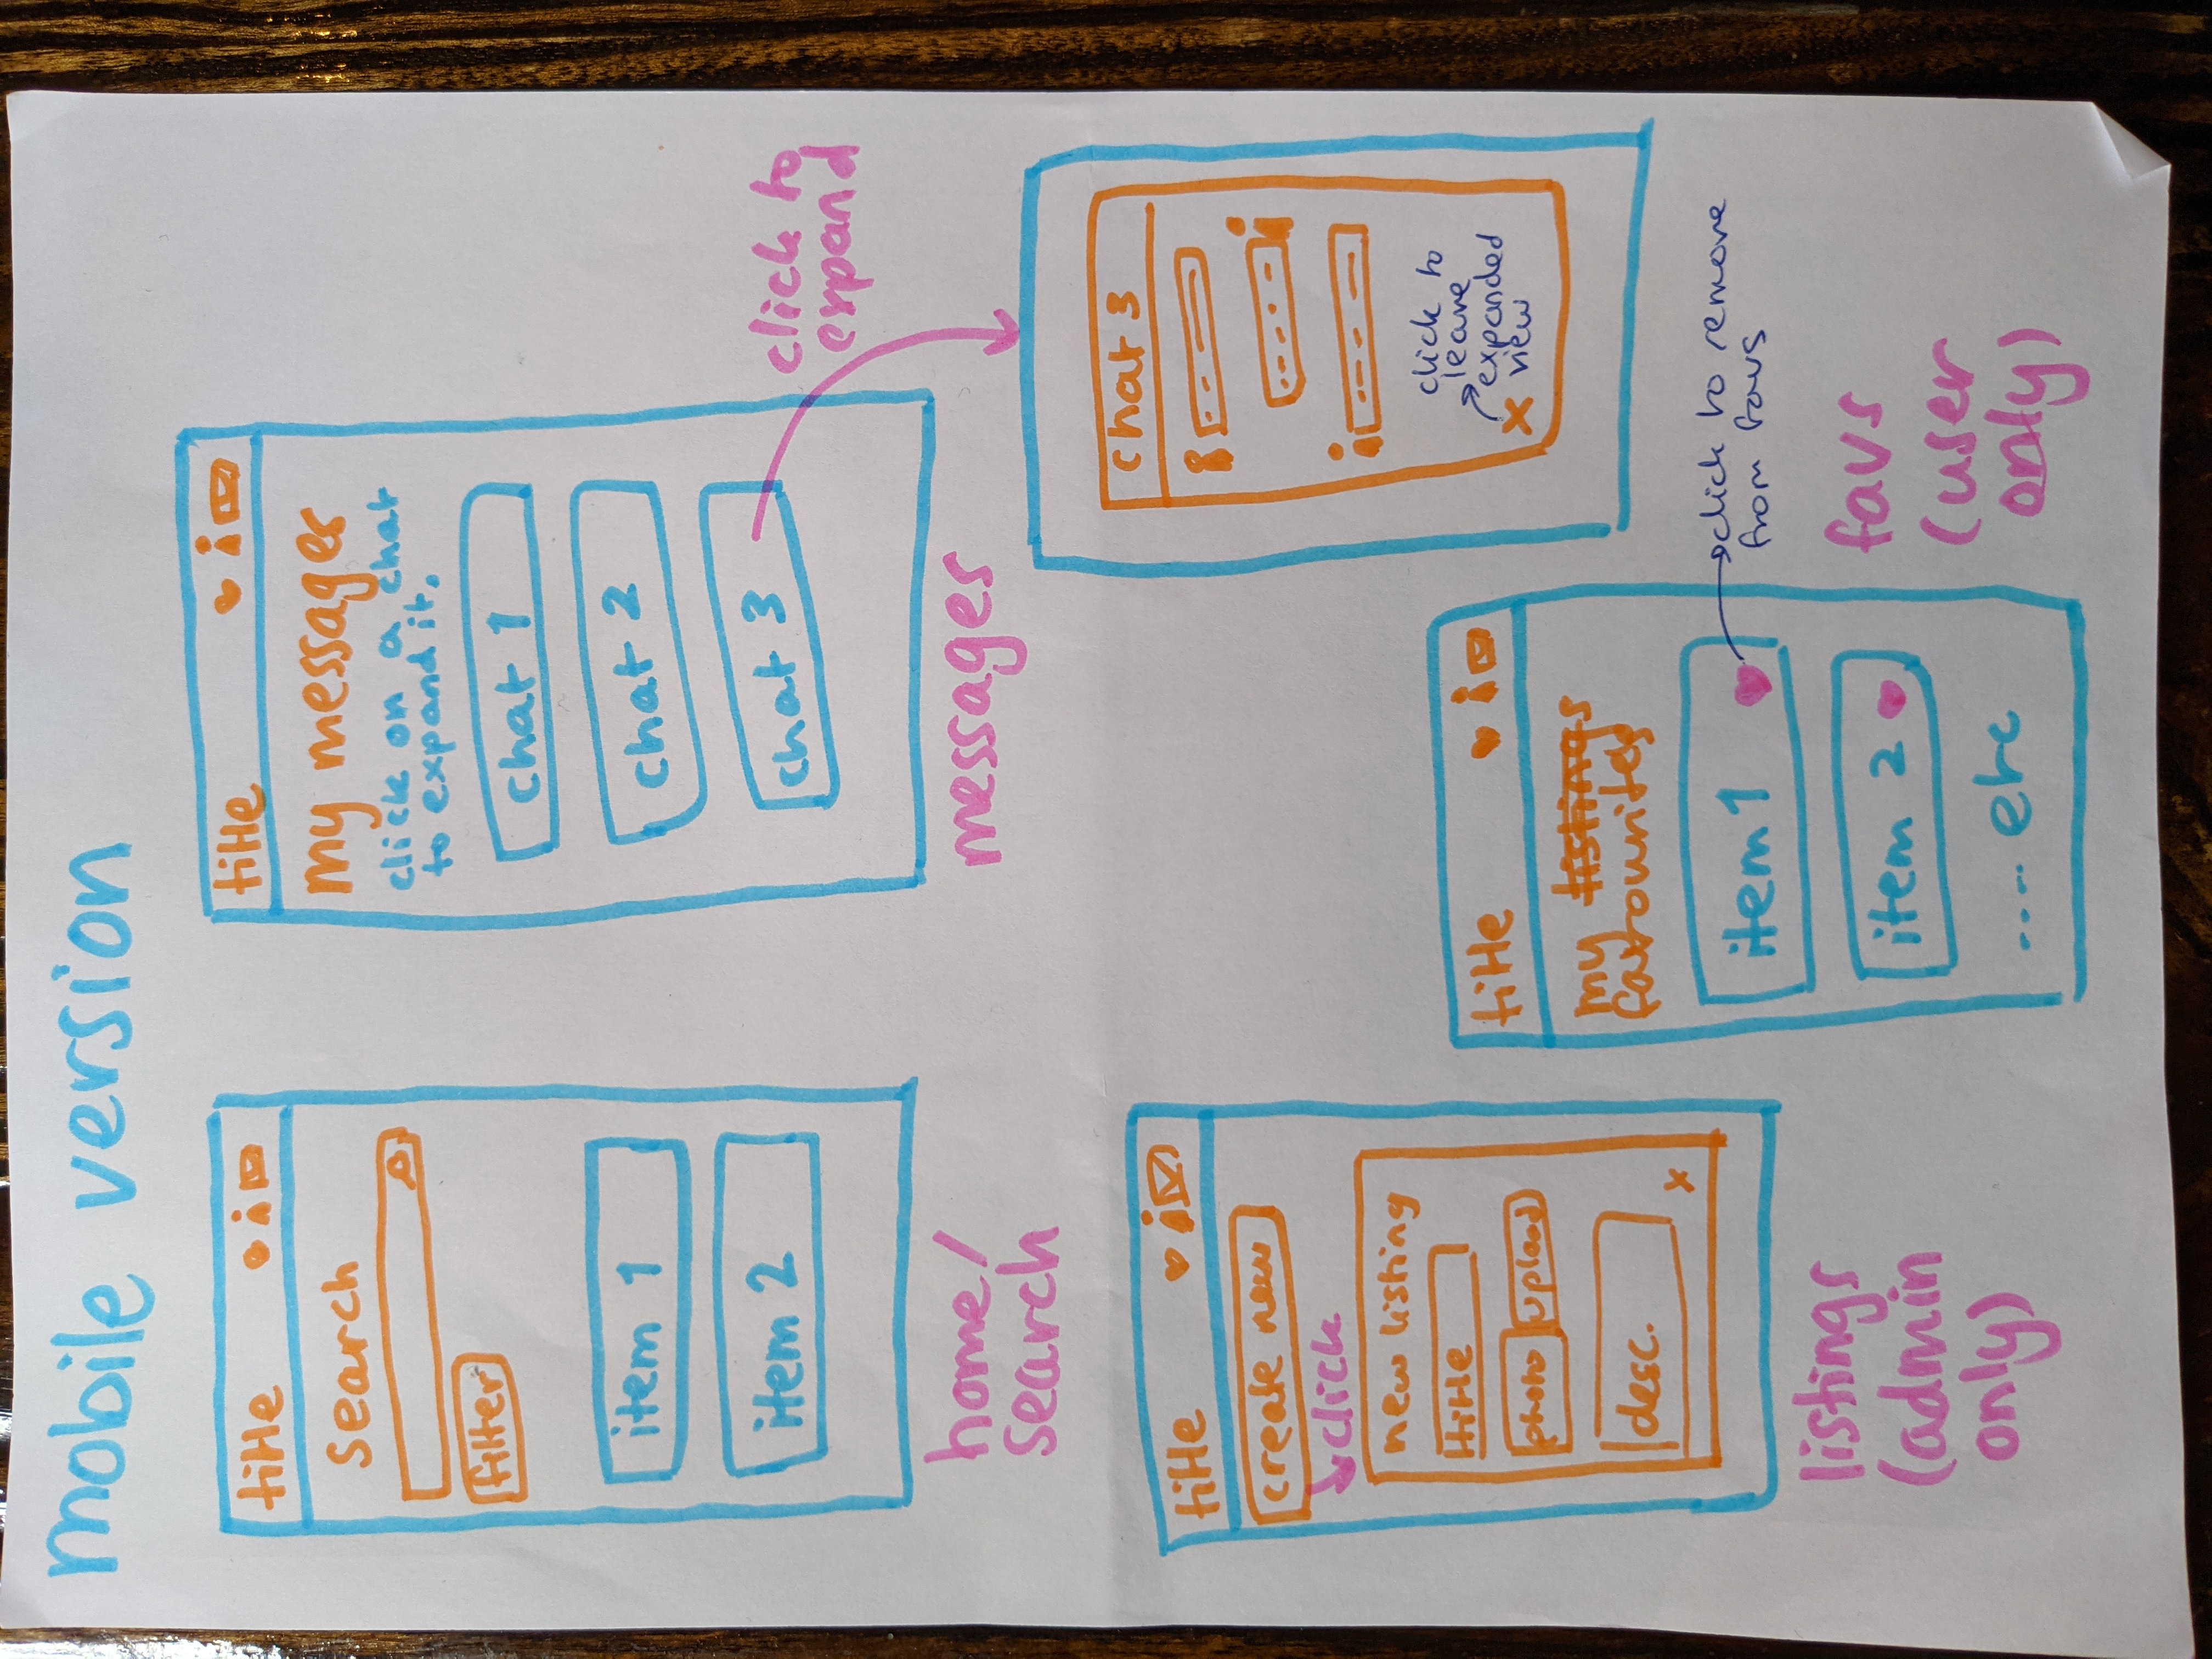 mobile version
title
search
filter
item 1
item 2
home/
search
title
my messages
click on a chat
to expand it.
chat 1
chat 2
chat 3
click to
expand
messages
chat 3
click to
leave
expanded
view
x
title
create new
click
new listing
title
photo upload
desc.
x
listings
(admin
only)
title
my listings
favourites
item 1
click to remove
from favs
item 2
.... etc
favs
(user
only)